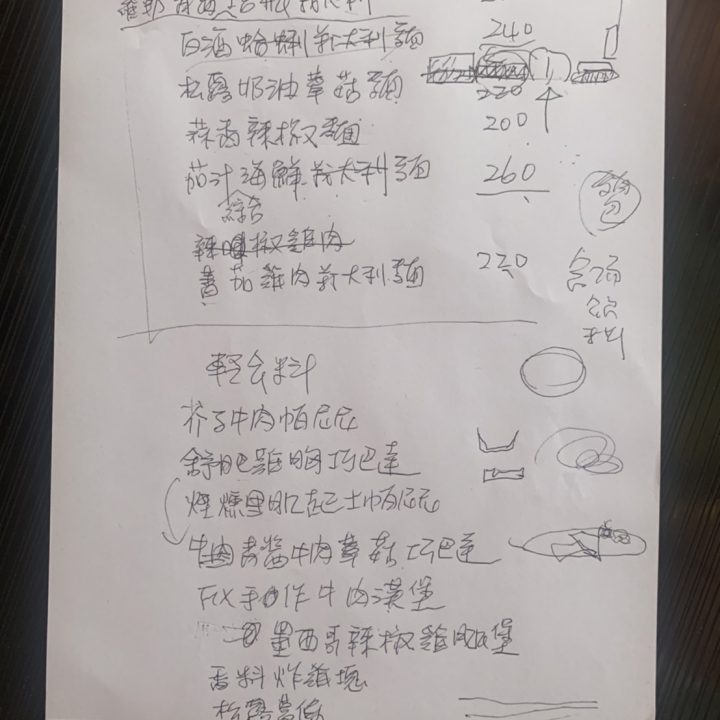 白酒蛤蜊义大利麵 240
松露奶油蕈菇麵 220
蒜香辣椒麵 200
茄汁海鮮义大利麵 260
綜合
辣椒雞肉
番茄雞肉义大利麵 220
輕食料
芥子牛肉帕尼尼
舒肥雞胸巧巴達
煙燻里肌起士帕尼尼
青醬牛肉蕈菇巧巴達
手作牛肉漢堡
墨西哥辣椒雞腿堡
香料炸雞塊
松露薯條